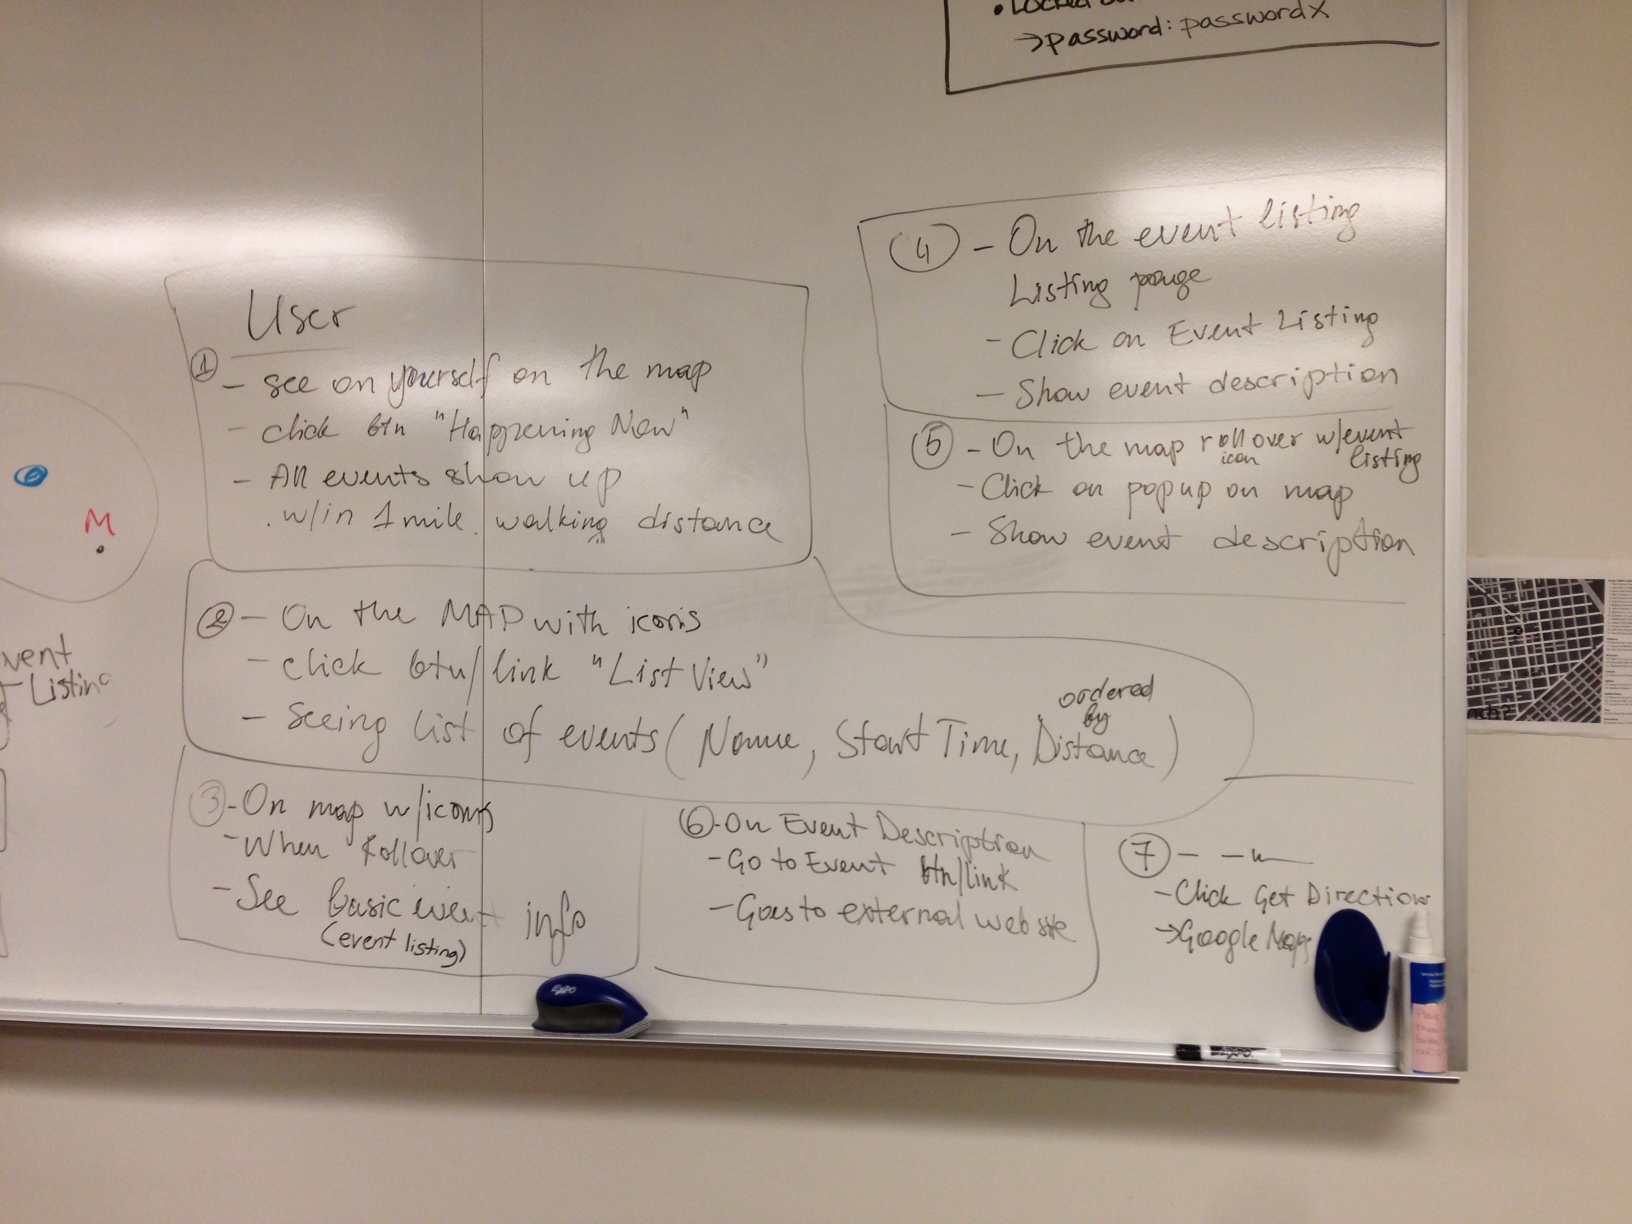 • Locked
→ password: passwordx
User
① - see on yourself on the map
- click btn "Happening Now"
- All events show up
w/in 1 mile "walking" distance
② - On the MAP with icons
- click btn/link "List View"
- Seeing list of events (Name, Start Time, Distance)
ordered
by
③ - On map w/icons
- When Rollover
- See basic event info
(event listing)
④ - On the event listing
Listing page
- Click on Event Listing
- Show event description
⑤ - On the map rollover w/event
icon listing
- Click on popup on map
- Show event description
⑥ - On Event Description
- Go to Event btn/link
- Goes to external website
⑦ - - " -
- Click Get Direction
→ Google Maps
M
vent
Listing
EXPO
EXPO